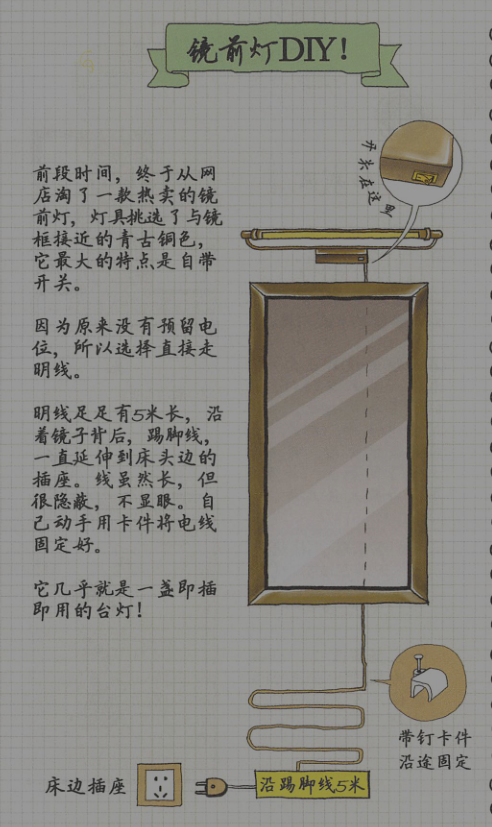 镜前灯DIY!
开关在这里
前段时间，终于从网
店淘了一款热卖的镜
前灯，灯具挑选了与镜
框接近的青古铜色，
它最大的特点是自带
开关。
因为原来没有预留电
位，所以选择直接走
明线。
明线足足有5米长，沿
着镜子背后，踢脚线，
一直延伸到床头边的
插座。线虽然长，但
很隐蔽，不显眼。自
己动手用卡件将电线
固定好。
它几乎就是一盏即插
即用的台灯！
带钉卡件
沿途固定
床边插座
沿踢脚线5米